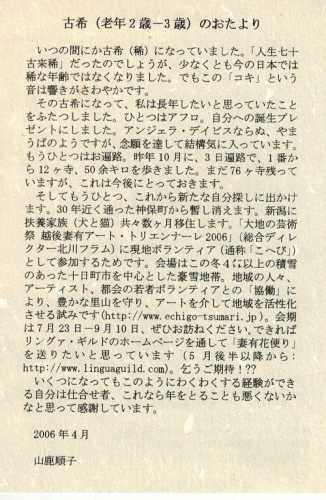 古希(老年2歳−3歳)のおたより
いつの間にか古希(稀)になっていました。「人生七十
古来稀」だったのでしょうが、少なくとも今の日本では
稀な年齢ではなくなりました。でもこの「コキ」という
音は響きがさわやかです。
その古希になって、私は長年したいと思っていたこと
をふたつしました。ひとつはアフロ。自分への誕生プレ
ゼントにしました。アンジェラ・デイビスならぬ、やま
うばのようですが、念願を達して結構気に入っています。
もうひとつはお遍路。昨年10月に、3日遍路で、1番か
ら12ヶ寺、50余キロを歩きました。まだ76ヶ寺残って
いますが、これは今後にとっておきます。
そしてもうひとつ、これから新たな自分探しに出かけ
ます。30年近く通った神保町から暫し消えます。新潟に
扶養家族(犬と猫)共々数ヶ月移住します。「大地の芸術
祭 越後妻有アート・トリエンナーレ2006」(総合ディレ
クター北川フラム)に現地ボランティア(通称「こへび」)
として参加するためです。会場はこの冬4㍍以上の積雪
のあった十日町市を中心とした豪雪地帯。地域の人々、
アーティスト、都会の若者ボランティアとの「協働」に
より、豊かな里山を守り、アートを介して地域を活性化
させる試みです(http://www.echigo-tsumari.jp)。会期
は7月23日−9月10日、ぜひお訪ねください。できれば
リングァ・ギルドのホームページを通して「妻有花便り」
を送りたいと思っています(5月後半以降から:
http://www.linguaguild.com)。乞うご期待!??
いくつになってもこのようにわくわくする経験ができ
る自分は仕合せ者、これなら年をとることも悪くないか
なと思って感謝しています。
2006年4月
山鹿順子